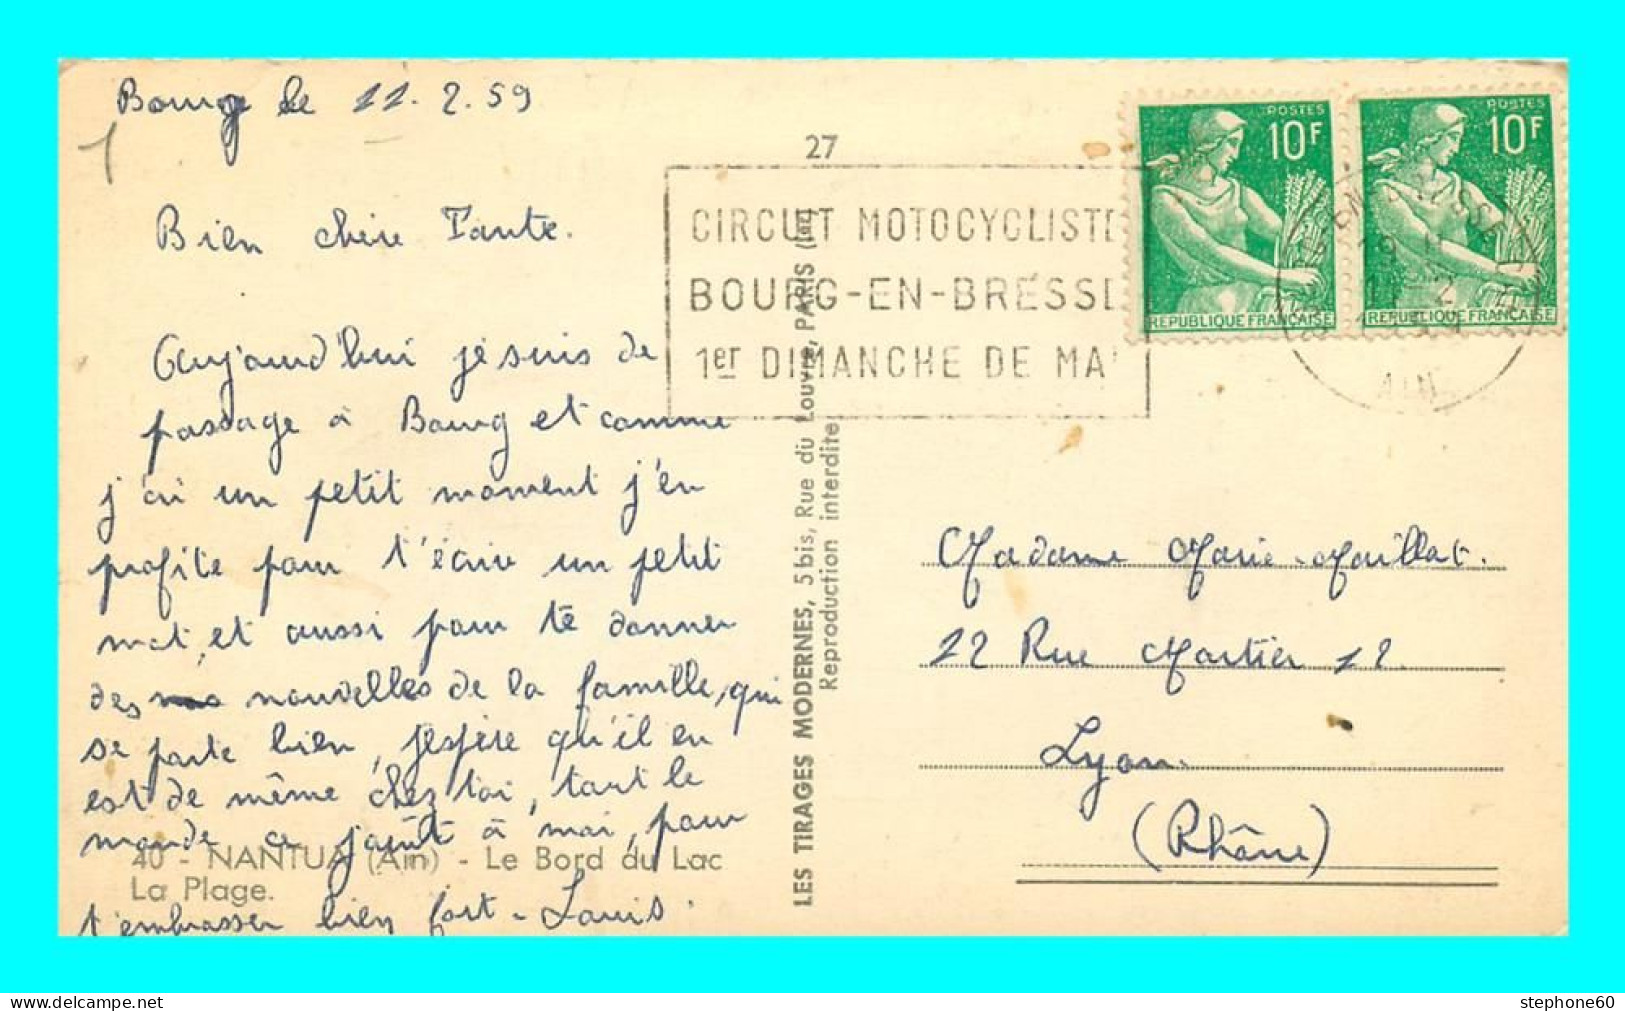 Bourg le 11.2.59
27
Bien chère Tante.
CIRCUIT MOTOCYCLISTE
BOURG-EN-BRESSE
1er DIMANCHE DE MAI
POSTES
10F
REPUBLIQUE FRANÇAISE
POSTES
10F
REPUBLIQUE FRANÇAISE
AIN
Aujourd'hui je suis de
passage à Bourg et comme
j'ai un petit moment j'en
profite pour t'écrire un petit
mot, et aussi pour te donner
des nouvelles de la famille, qui
se porte bien, j'espère qu'il en
est de même chez toi, tout le
monde ce joint à moi, pour
t'embrasser bien fort - Louis.
40 - NANTUA (Ain) - Le Bord du Lac
La Plage.
LES TIRAGES MODERNES, 5 bis, Rue du Louvre, PARIS
Reproduction interdite
Madame Marie Maillat.
12 Rue Mortier 12.
Lyon.
(Rhône)
stephone60